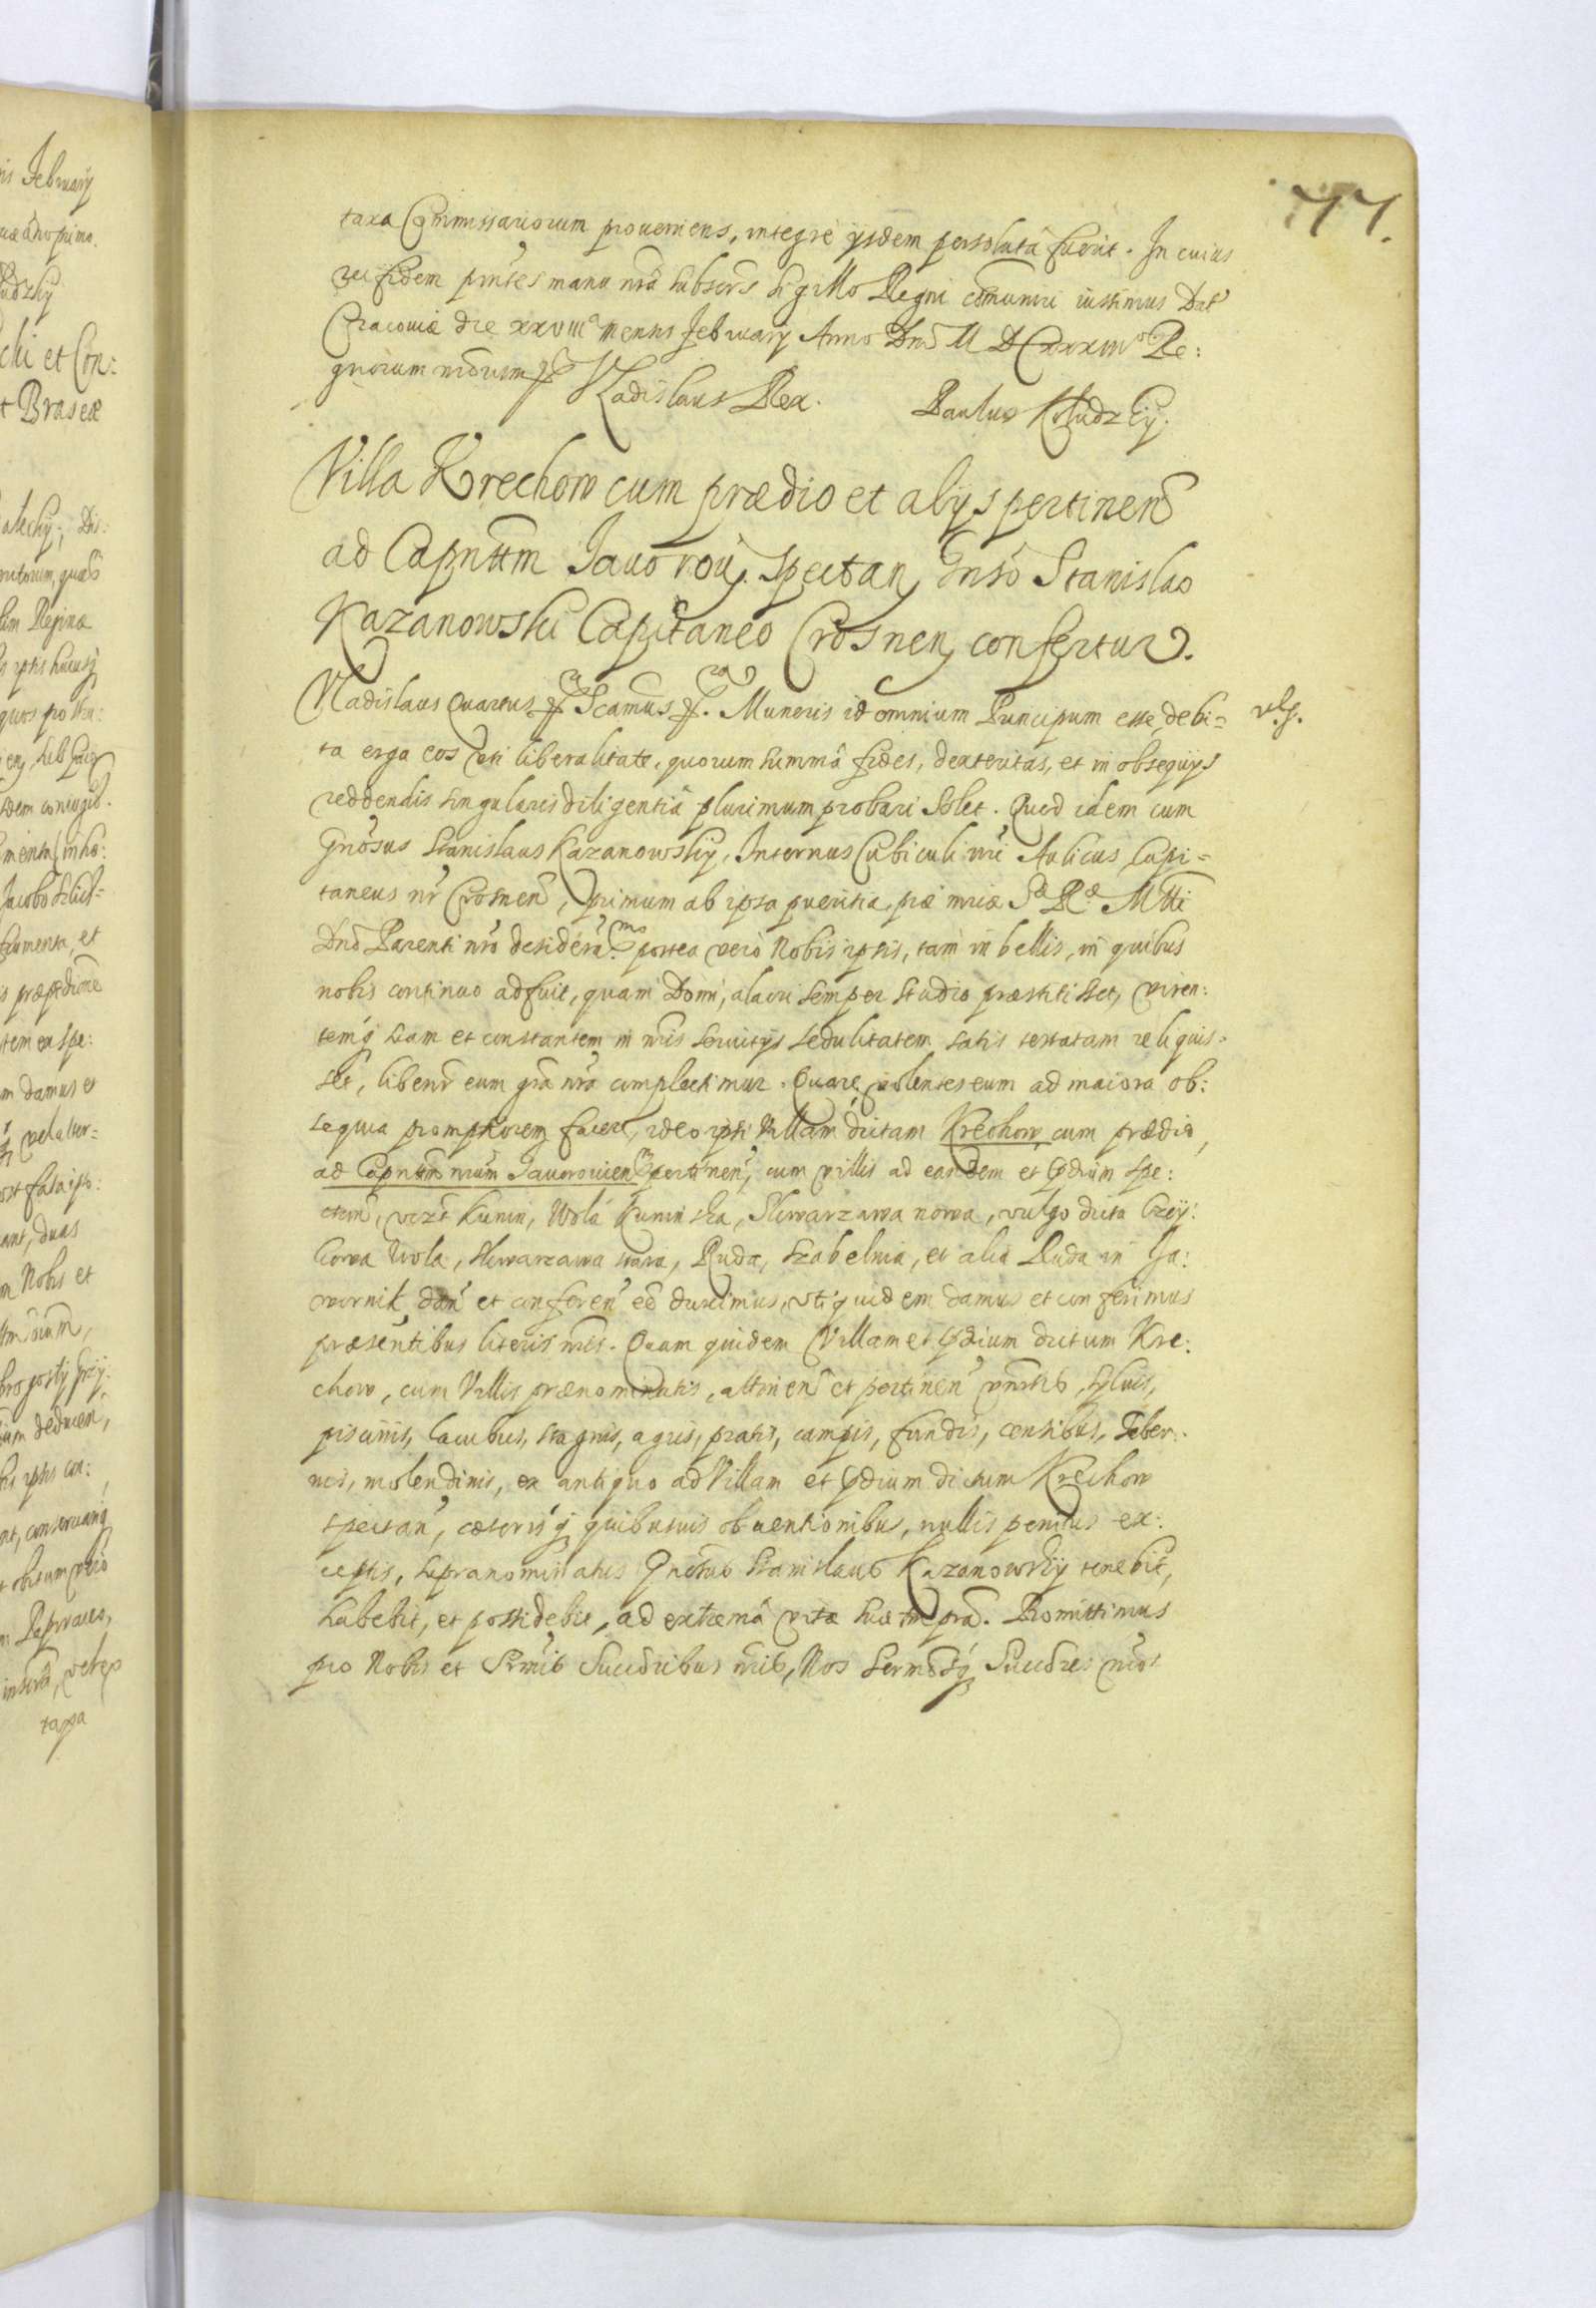 77.
taxa Commissariorum proueniens, integrè ijsdem persoluta fuerit. In cuius
rei fidem pntes manu nrã subscrs sigillo Regni cõmuniri iussimus Dat
Cracouiæ die xxviiiᵃ mensis February Anno Dni M D CxxxiIIᵒ Re:
gnorum nrõrum
Vladislaus Rex. Paulus Kołudzky.
Villa Krechow cum prædio et alijs pertinen
ad Capnttm Jauorouien spectan Gnso Stanislao
Kazanowski Capitaneo Crosnen confertur.
Vladislaus Quartus Scamus. Muneris id omnium Principum esse, debi-
ta erga eos uti liberalitate, quorum summa fides, dexteritas, et in obsequijs
reddendis singularis diligentia plurimum probari solet. Quod idem cum
Gnosus Stanislaus Kazanowsky, Internus Cubiculi nri Aulicus Capi-
taneus nr Crosnen, primum ab ipsa pueritia, piæ mriæ Sᵃ Rᵃ Mtti
Dno Parenti nro desiderãᵐᵒ postea verò Nobis ipsis, tam in bellis, in quibus
nobis continuo adfuit, quam Domi, alacri semper studio præstitisset, viren:
temq suam et constantem in nris seruitijs sedulitatem satis testatam reliquis-
set, libenr eum gra nra complectimur. Quare volentes eum ad maiora ob:
sequia promptiorem facere, ideo ipsi Villam dictam Krechow cum prædio,
ad Capnttm nrum Jauorouien pertinen, cum villis ad eandem et pdium spe:
ctan, vizt Kunin, Wola Kuninska, Skwarzawa nowa, vulgo dicta Czey:
kowa Wola, Skwarzawa stara, Ruda, Szabelnia, et alia Ruda in Ja:
wornik dan et conferen eẽ duximus, vti quidem damus et conferimus
præsentibus literis nris. Quam quidem Villam et pdium dictum Kre:
chow, cum Villis prænominatis, attinen et pertinen vnrsis, syluis,
piscinis, lacubus, stagnis, agris, pratis, campis, fundis, censibus, Taber:
nis, molendinis, ex antiquo ad Villam et pdium dictum Krechow
spectan, cæterisq quibusuis obuentionibus, nullis penitus ex:
ceptis, supranominatus Gnosus Stanislaus Kazanowsky tenebit,
habebit, et possidebit, ad extrema vitæ suæ tmpra. Promittimus
pro Nobis et Srmis Succribus nris, Nos Sermosq Succres nros